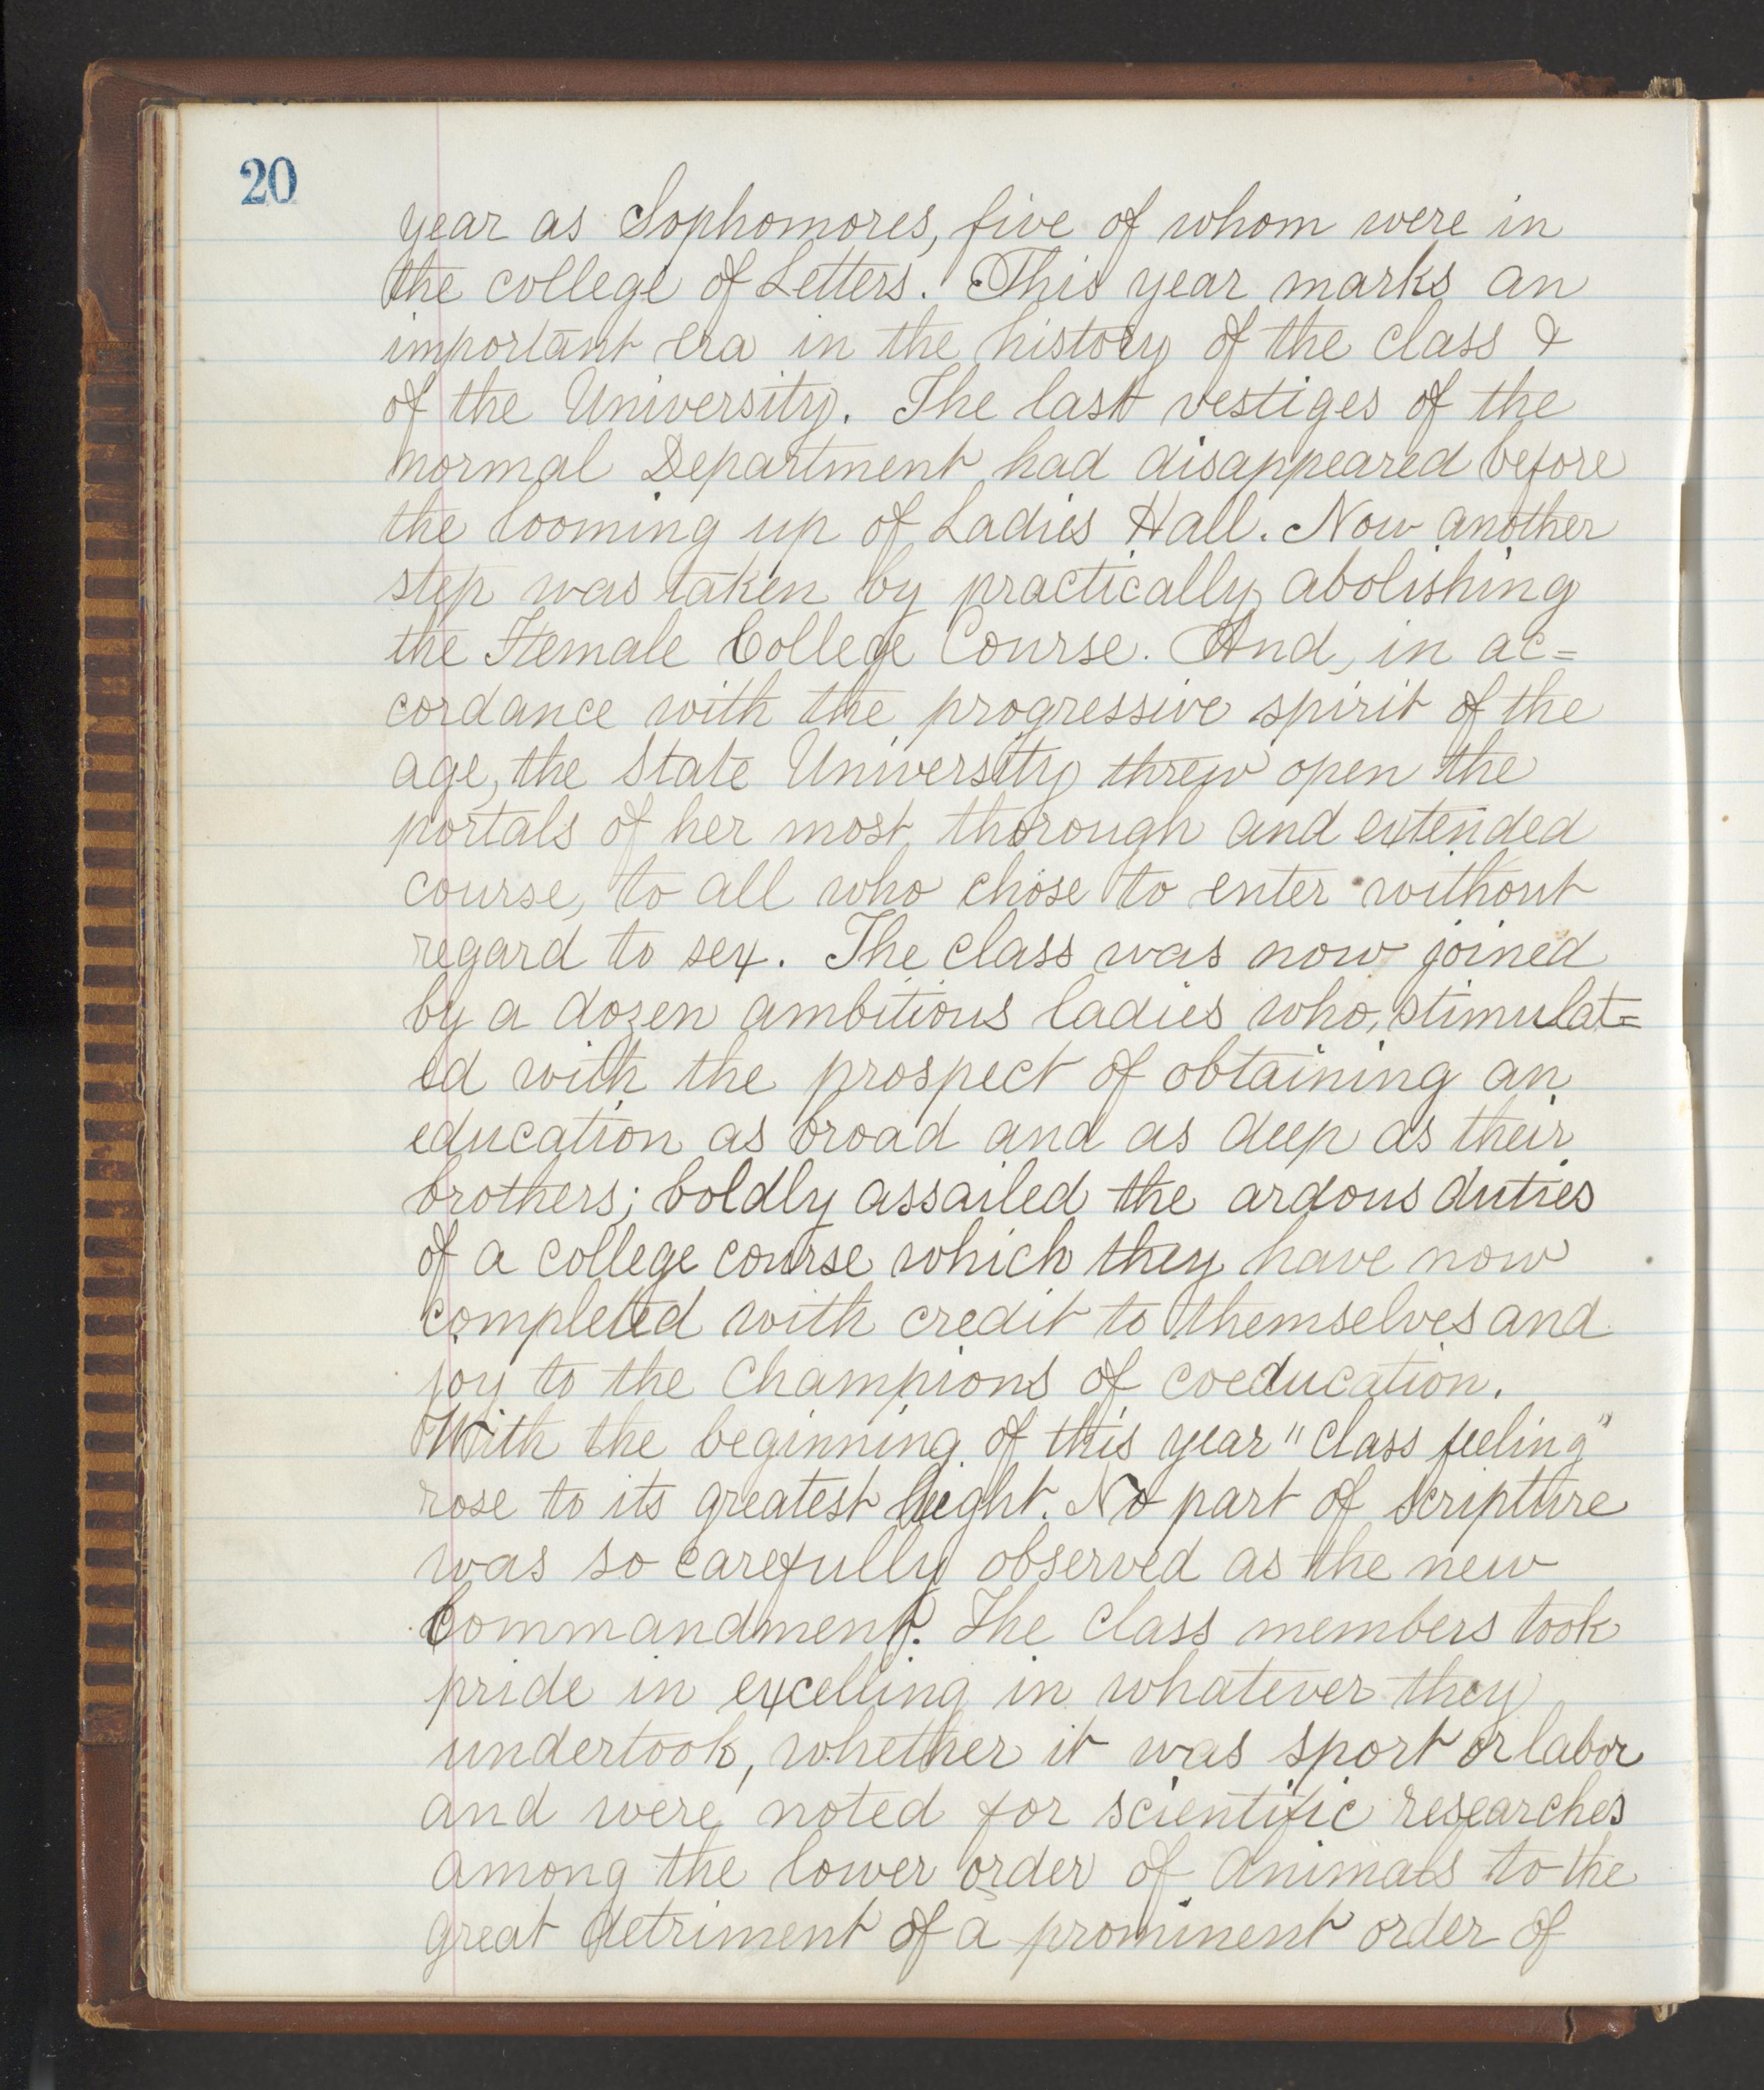 20
year as Sophomores, five of whom were in
the college of Letters. This year marks an
important era in the history of the class &
of the University. The last vestiges of the
normal Department had disappeared before
the looming up of Ladies Hall. Now another
step was taken by practically abolishing
the Female College Course. And, in ac=
cordance with the progressive spirit of the
age, the State University threw open the
portals of her most thorough and extended
course, to all who chose to enter without
regard to sex. The class was now joined
by a dozen ambitious ladies who, stimulat=
ed with the prospect of obtaining an
education as broad and as deep as their
brothers; boldly assailed the ardous duties
of a college course which they have now
completed with credit to themselves and
joy to the Champions of coeducation.
With the beginning of this year "class feeling"
rose to its greatest hight. No part of scripture
was so carefully observed as the new
Commandment. The Class members took
pride in excelling in whatever they
undertook, whether it was sport or labor
and were noted for scientific researches
among the lower order of animals to the
great detriment of a prominent order of